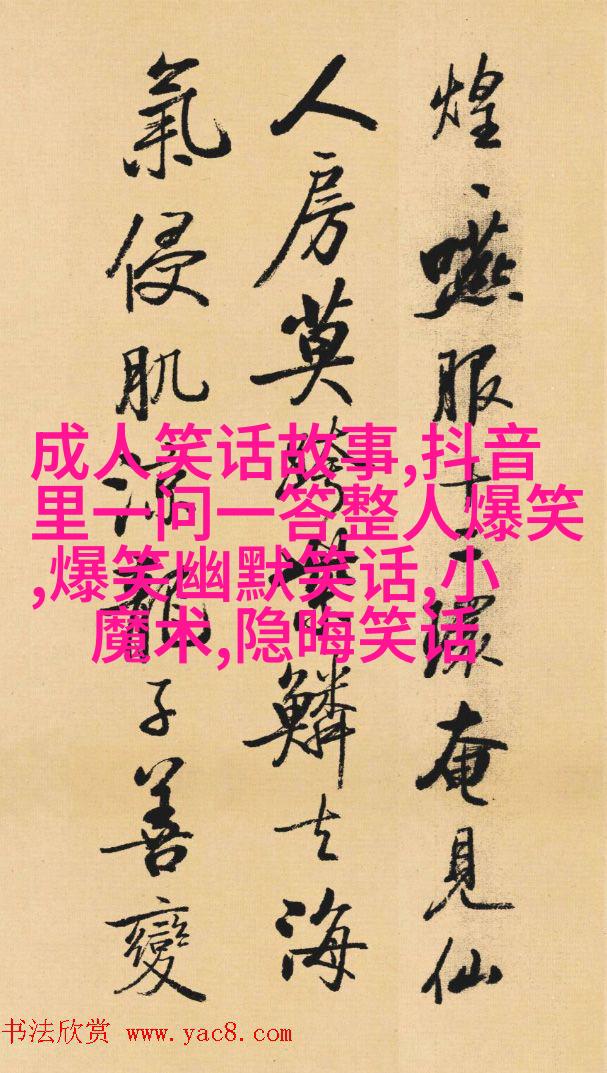 煌、嚥服十二環奄見仙
人房莫騎紫鱗去海
氣侵肌涼龍子善變
成人笑话故事,抖音
里一问一答整人爆笑
,爆笑幽默笑话,小
魔术,隐晦笑话
书法欣赏 www.yac8.com